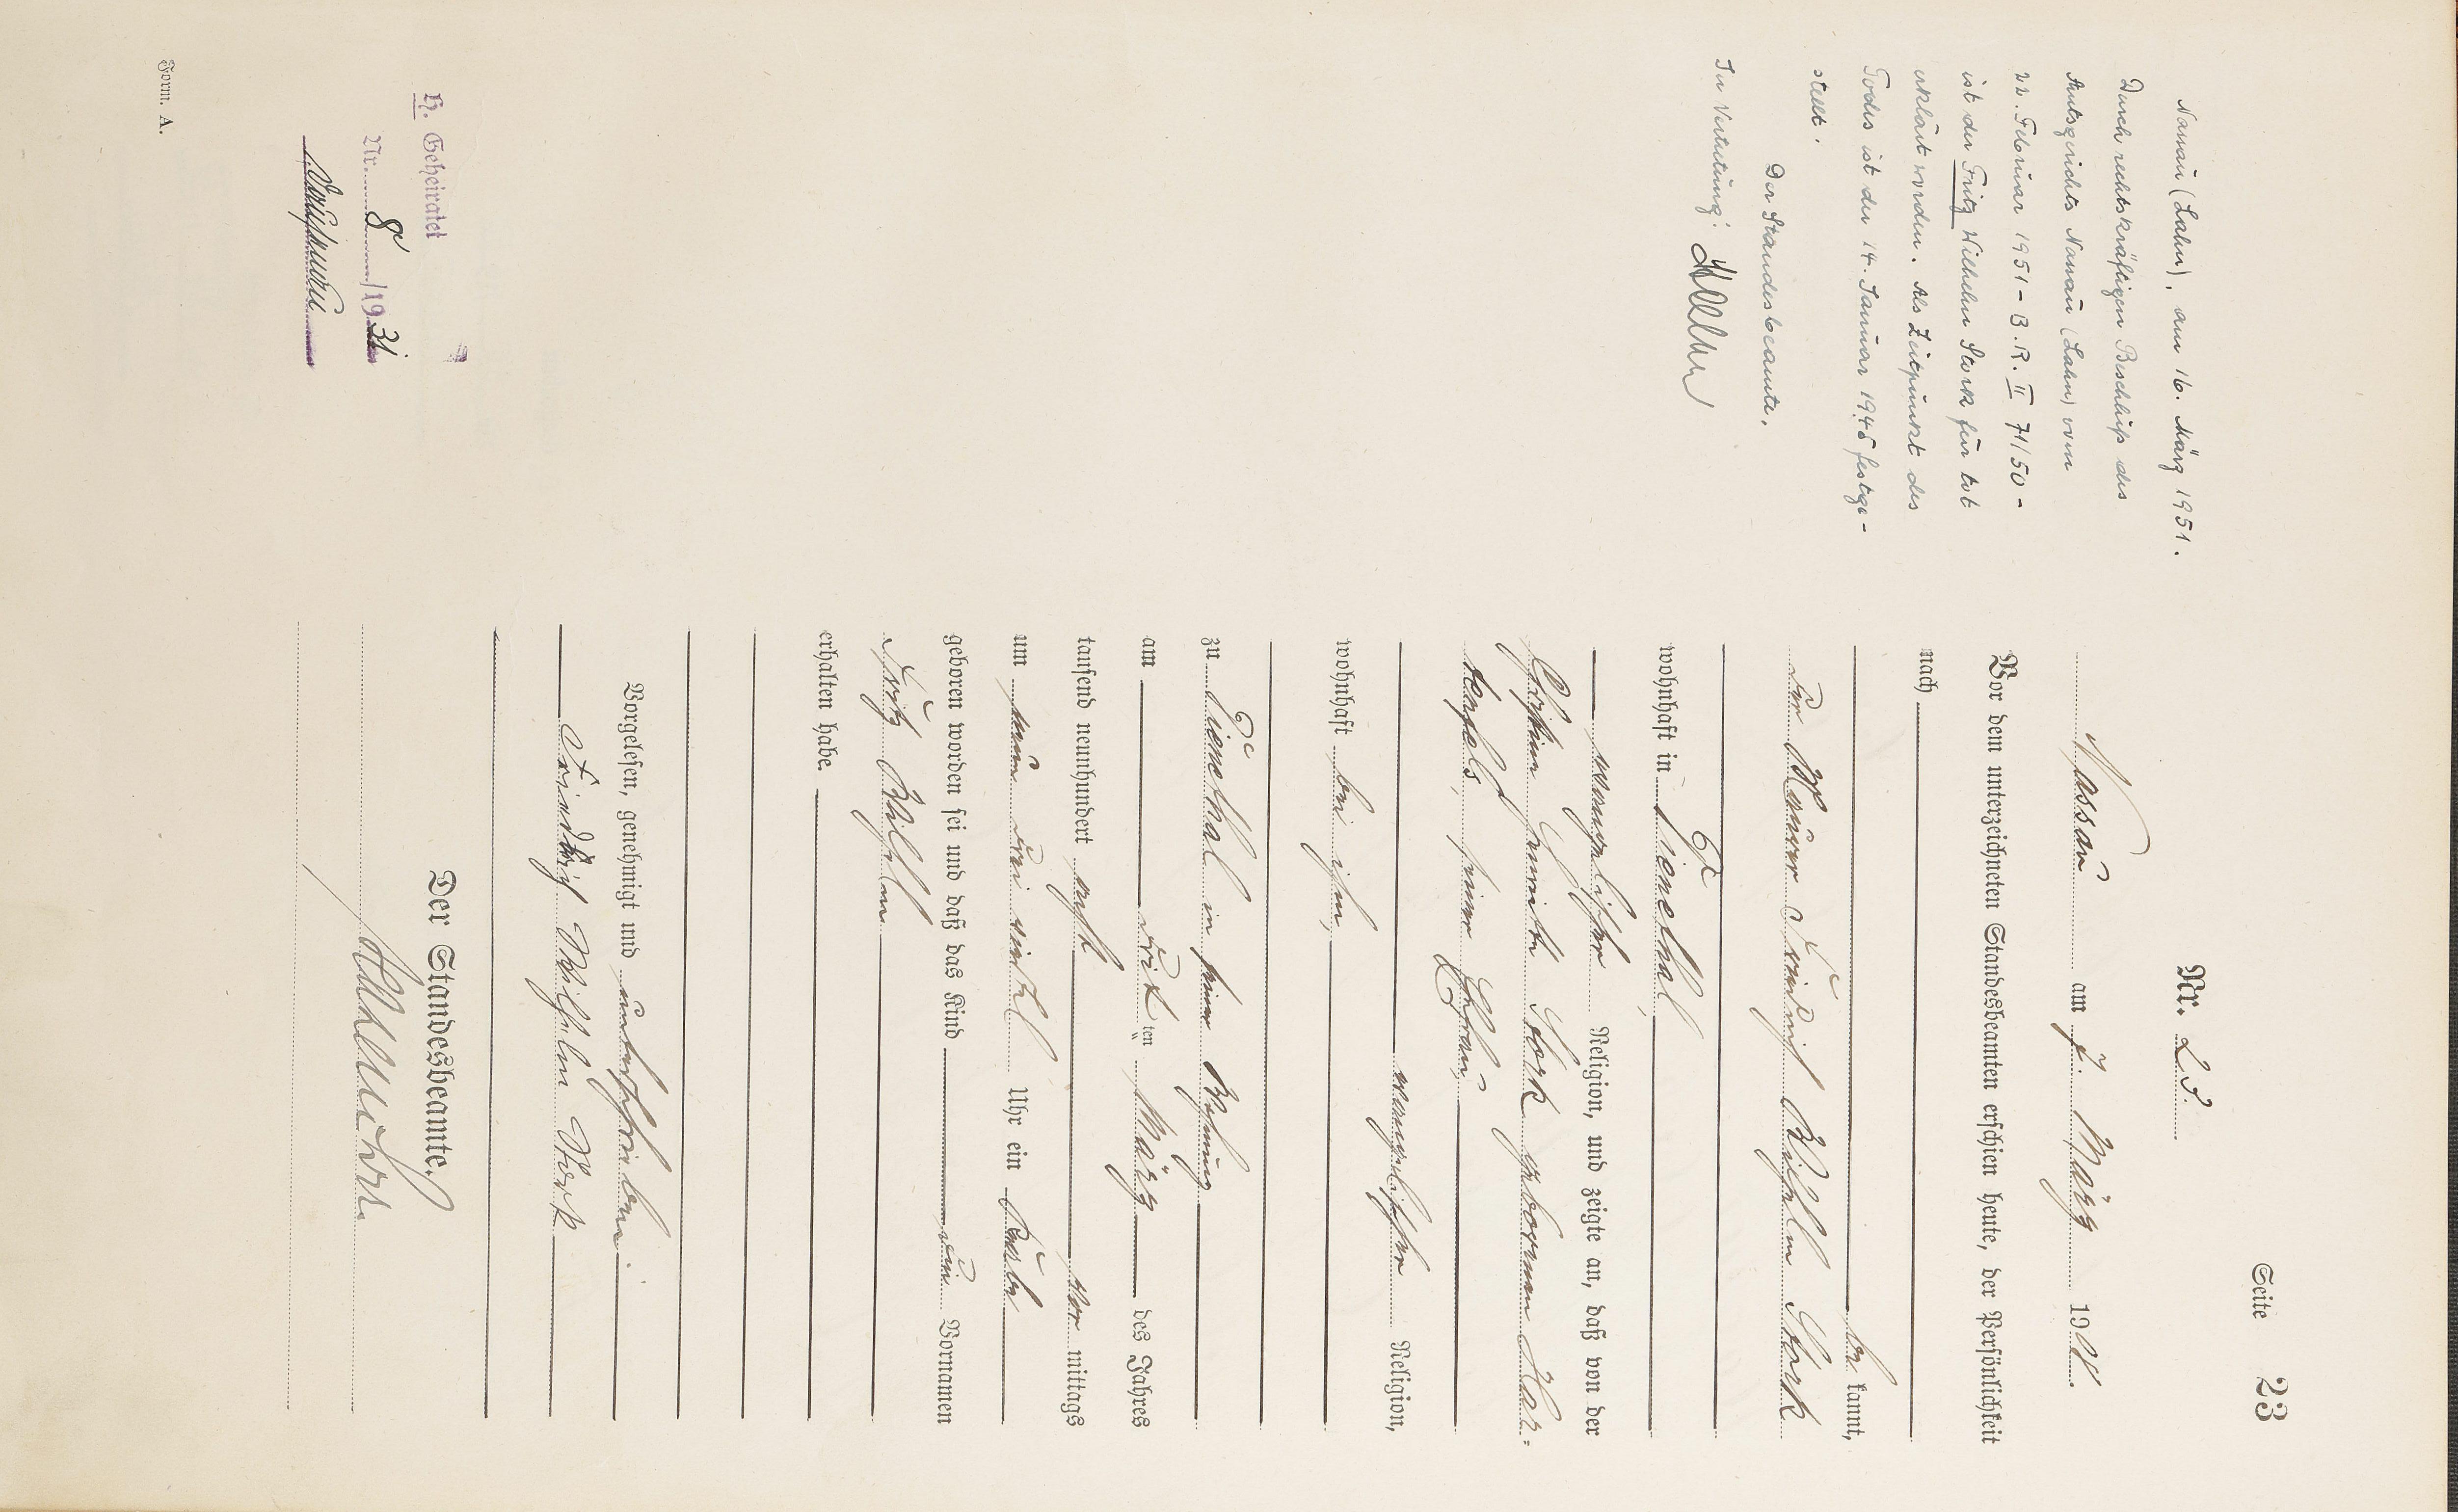 Seite 23
Nr. 23.
Nassau am 7. März 1908.
Vor dem unterzeichneten Standesbeamten erschien heute, der Persönlichkeit
nach
be kannt,
der Friedrich Wilhelm Stork
wohnhaft in Dienethal,
evangelischer Religion, und zeigte an, daß von der
geborenen Har=
seiner Ehefrau,
evangelischer Religion,
wohnhaft bei ihm,
zu Dienethal in seiner Wohnung
am dritten März des Jahres
tausend neunhundert acht vor mittags
um neun drei viertel Uhr ein Knabe
geboren worden sei und daß das Kind die Vornamen
Fritz Wilhelm
erhalten habe.
Vorgelesen, genehmigt und unterschrieben.
Friedrich Wilhelm Stork
Der Standesbeamte.
Nassau (Lahn), am 16. März 1951.
Durch rechtskräftigen Beschluß des
Amtsgerichts Nassau (Lahn) vom
22. Februar 1951 - B.R. II 71/50 -
ist der Fritz Wilhelm Stork für tot
erklärt worden. Als Zeitpunkt des
Todes ist der 14. Januar 1945 festge-
stellt.
Der Standesbeamte,
In Vertretung:
H. Geheiratet
Nr. 8/1931
Form. A.